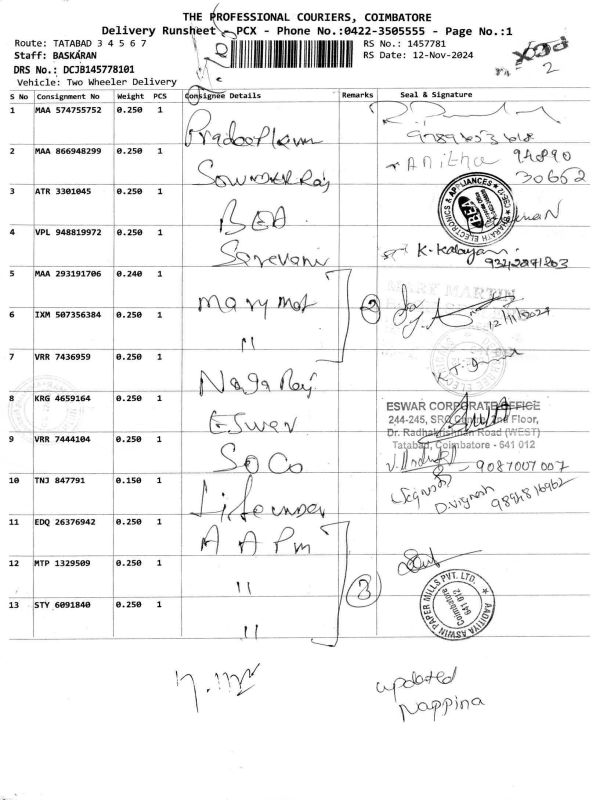 THE PROFESSIONAL COURIERS, COIMBATORE
Delivery Runsheet PCX - Phone No.:0422-3505555 - Page No.:1
Route: TATABAD 3 4 5 6 7
RS No.: 1457781
Staff: BASKARAN
RS Date: 12-Nov-2024
DRS No.: DCJB145778101
Vehicle: Two Wheeler Delivery
2
S No Consignment No Weight PCS Consignee Details Remarks Seal & Signature
1 MAA 574755752 0.250 1 Pradeepkum
2 MAA 866948299 0.250 1 Sownderraj Anitha 94890
30662
3 ATR 3301045 0.250 1 BEA
BHARATH ELECTRONICS & APPLIANCES
4 VPL 948819972 0.250 1 Saravani K. Kalayani
5 MAA 293191706 0.240 1 mary mat
MARY MARTIN
2
6 IXM 507356384 0.250 1 "
12/11/2024
7 VRR 7436959 0.250 1 Naga Raj
8 KRG 4659164 0.250 1 Eswar
ESWAR CORPORATE OFFICE
244-245, SRC Centre, 2nd Floor,
Dr. Radhakrishnan Road (WEST)
Tatabad, Coimbatore - 641 012
9 VRR 7444104 0.250 1 SOCO
9087007007
10 TNJ 847791 0.150 1 Lifeunder
D.Vignesh 9894816962
11 EDQ 26376942 0.250 1 A A Pm
12 MTP 1329509 0.250 1 "
3
13 STY 6091840 0.250 1 "
AADITIYA ASWIN PAPER MILLS PVT. LTD.
Coimbatore
641 012
updated
Nappina